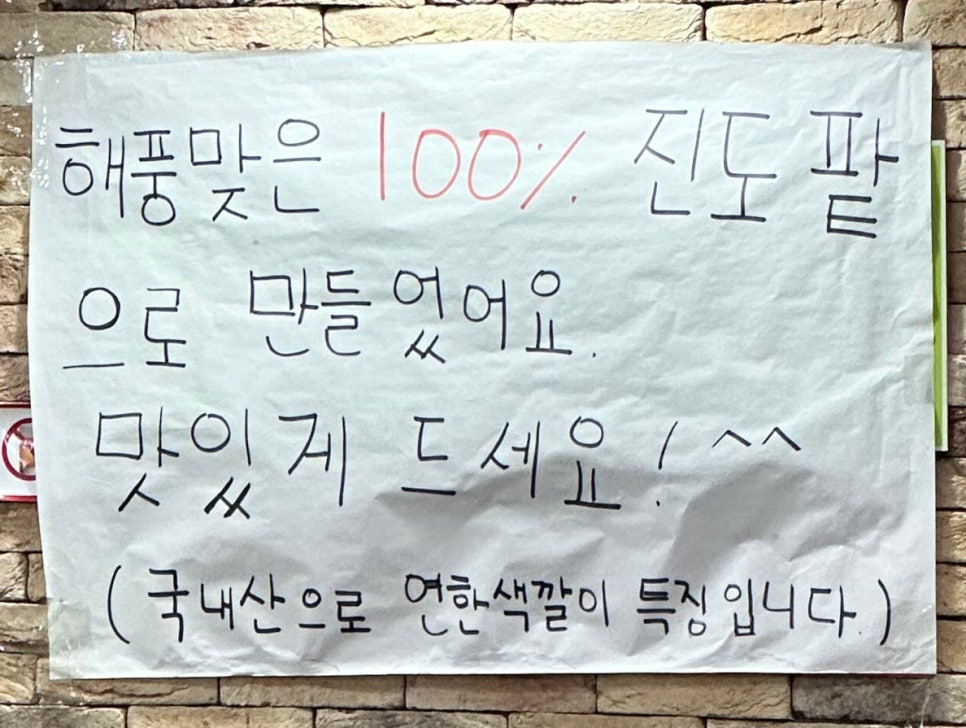 해풍맞은 100% 진도 팥
으로 만들었어요.
맛있게 드세요! ^^
(국내산으로 연한색깔이 특징입니다.)